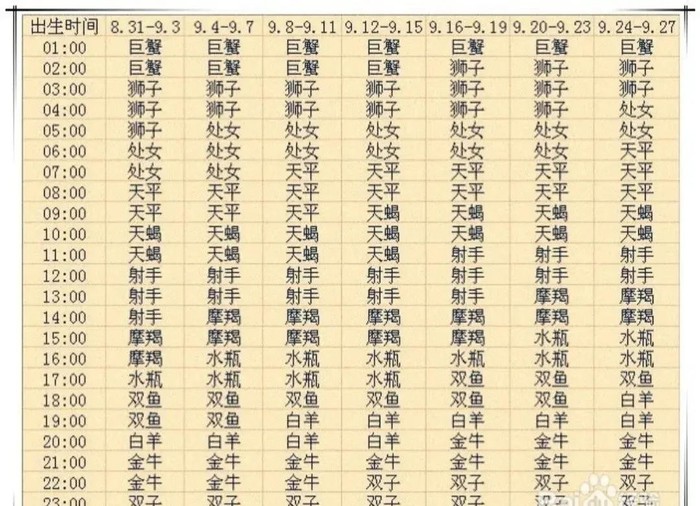 出生时间 8.31-9.3 9.4-9.7 9.8-9.11 9.12-9.15 9.16-9.19 9.20-9.23 9.24-9.27
01:00 巨蟹 巨蟹 巨蟹 巨蟹 巨蟹 巨蟹 巨蟹
02:00 巨蟹 巨蟹 巨蟹 巨蟹 狮子 狮子 狮子
03:00 狮子 狮子 狮子 狮子 狮子 狮子 狮子
04:00 狮子 狮子 狮子 狮子 狮子 狮子 处女
05:00 狮子 处女 处女 处女 处女 处女 处女
06:00 处女 处女 处女 处女 处女 处女 天平
07:00 处女 处女 天平 天平 天平 天平 天平
08:00 天平 天平 天平 天平 天平 天平 天平
09:00 天平 天平 天平 天蝎 天蝎 天蝎 天蝎
10:00 天蝎 天蝎 天蝎 天蝎 天蝎 天蝎 天蝎
11:00 天蝎 天蝎 天蝎 天蝎 射手 射手 射手
12:00 射手 射手 射手 射手 射手 射手 射手
13:00 射手 射手 射手 射手 射手 摩羯 摩羯
14:00 射手 摩羯 摩羯 摩羯 摩羯 摩羯 摩羯
15:00 摩羯 摩羯 摩羯 摩羯 摩羯 水瓶 水瓶
16:00 摩羯 水瓶 水瓶 水瓶 水瓶 水瓶 水瓶
17:00 水瓶 水瓶 水瓶 水瓶 双鱼 双鱼 双鱼
18:00 双鱼 双鱼 双鱼 双鱼 双鱼 双鱼 白羊
19:00 双鱼 双鱼 白羊 白羊 白羊 白羊 白羊
20:00 白羊 白羊 白羊 白羊 金牛 金牛 金牛
21:00 金牛 金牛 金牛 金牛 金牛 金牛 金牛
22:00 金牛 金牛 金牛 双子 双子 双子 双子
23:00 双子 双子 双子 双子 双子 双子